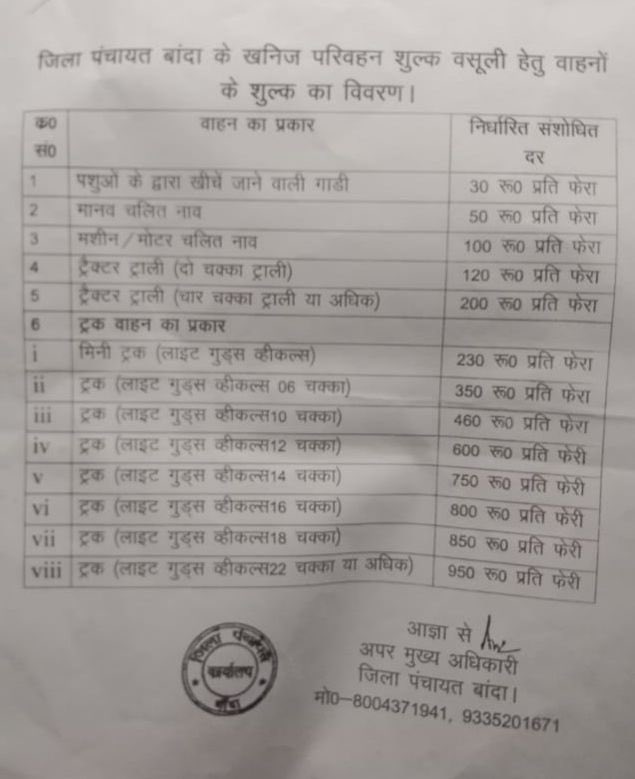 जिला पंचायत बांदा के खनिज परिवहन शुल्क वसूली हेतु वाहनों
के शुल्क का विवरण।
क्र0 सं0 वाहन का प्रकार निर्धारित संशोधित दर
1 पशुओं के द्वारा खीचें जाने वाली गाडी 30 रू0 प्रति फेरा
2 मानव चलित नाव 50 रू0 प्रति फेरा
3 मशीन/मोटर चलित नाव 100 रू0 प्रति फेरा
4 ट्रैक्टर ट्राली (दो चक्का ट्राली) 120 रू0 प्रति फेरा
5 ट्रैक्टर ट्राली (चार चक्का ट्राली या अधिक) 200 रू0 प्रति फेरा
6 ट्रक वाहन का प्रकार
i मिनी ट्रक (लाइट गुड्स व्हीकल्स) 230 रू0 प्रति फेरा
ii ट्रक (लाइट गुड्स व्हीकल्स 06 चक्का) 350 रू0 प्रति फेरा
iii ट्रक (लाइट गुड्स व्हीकल्स10 चक्का) 460 रू0 प्रति फेरा
iv ट्रक (लाइट गुड्स व्हीकल्स12 चक्का) 600 रू0 प्रति फेरी
v ट्रक (लाइट गुड्स व्हीकल्स14 चक्का) 750 रू0 प्रति फेरी
vi ट्रक (लाइट गुड्स व्हीकल्स16 चक्का) 800 रू0 प्रति फेरी
vii ट्रक (लाइट गुड्स व्हीकल्स18 चक्का) 850 रू0 प्रति फेरी
viii ट्रक (लाइट गुड्स व्हीकल्स22 चक्का या अधिक) 950 रू0 प्रति फेरी
जिला पंचायत
कार्यालय
बाँदा
आज्ञा से
अपर मुख्य अधिकारी
जिला पंचायत बांदा।
मो0–8004371941, 9335201671